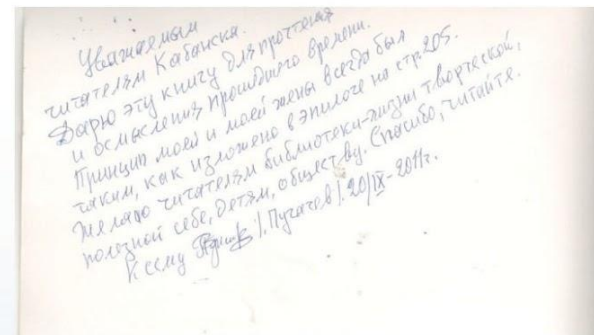 Уважаемым
читателям Кабанска.
Дарю эту книгу для прочтения
и осмысления прошедшего времени.
Принцип моей и моей жены всегда был
таким, как изложено в эпилоге на стр 205.
Желаю читателям библиотеки-жизни творческой,
полезной себе, детям, обществу. Спасибо, читайте.
К сему /. Пугачев /. 20/IX-2011г.